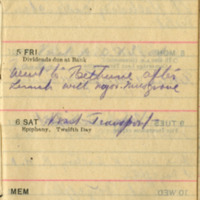 5 FRI
Dividends due at Bank
Went to Bethune after
Lunch with
6 SAT Road Transport
Epiphany. Twelfth Day
MEM